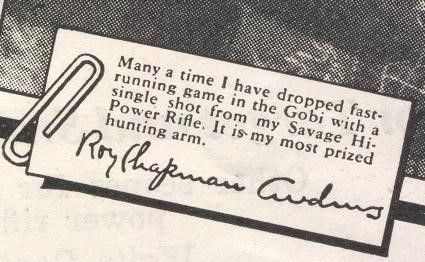 Many a time I have dropped fast-
running game in the Gobi with a
single shot from my Savage Hi-
Power Rifle. It is my most prized
hunting arm.
Roy Chapman Andrews
power rifl